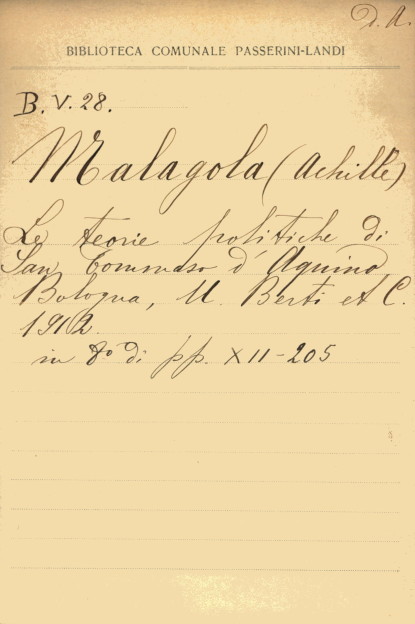 D. A.
BIBLIOTECA COMUNALE PASSERINI-LANDI
B. V. 28.
Malagola (Achille)
Le teorie politiche di
San Tommaso d'Aquino,
Bologna, U. Berti et C.
1912.
in 8° di pp. XII-205